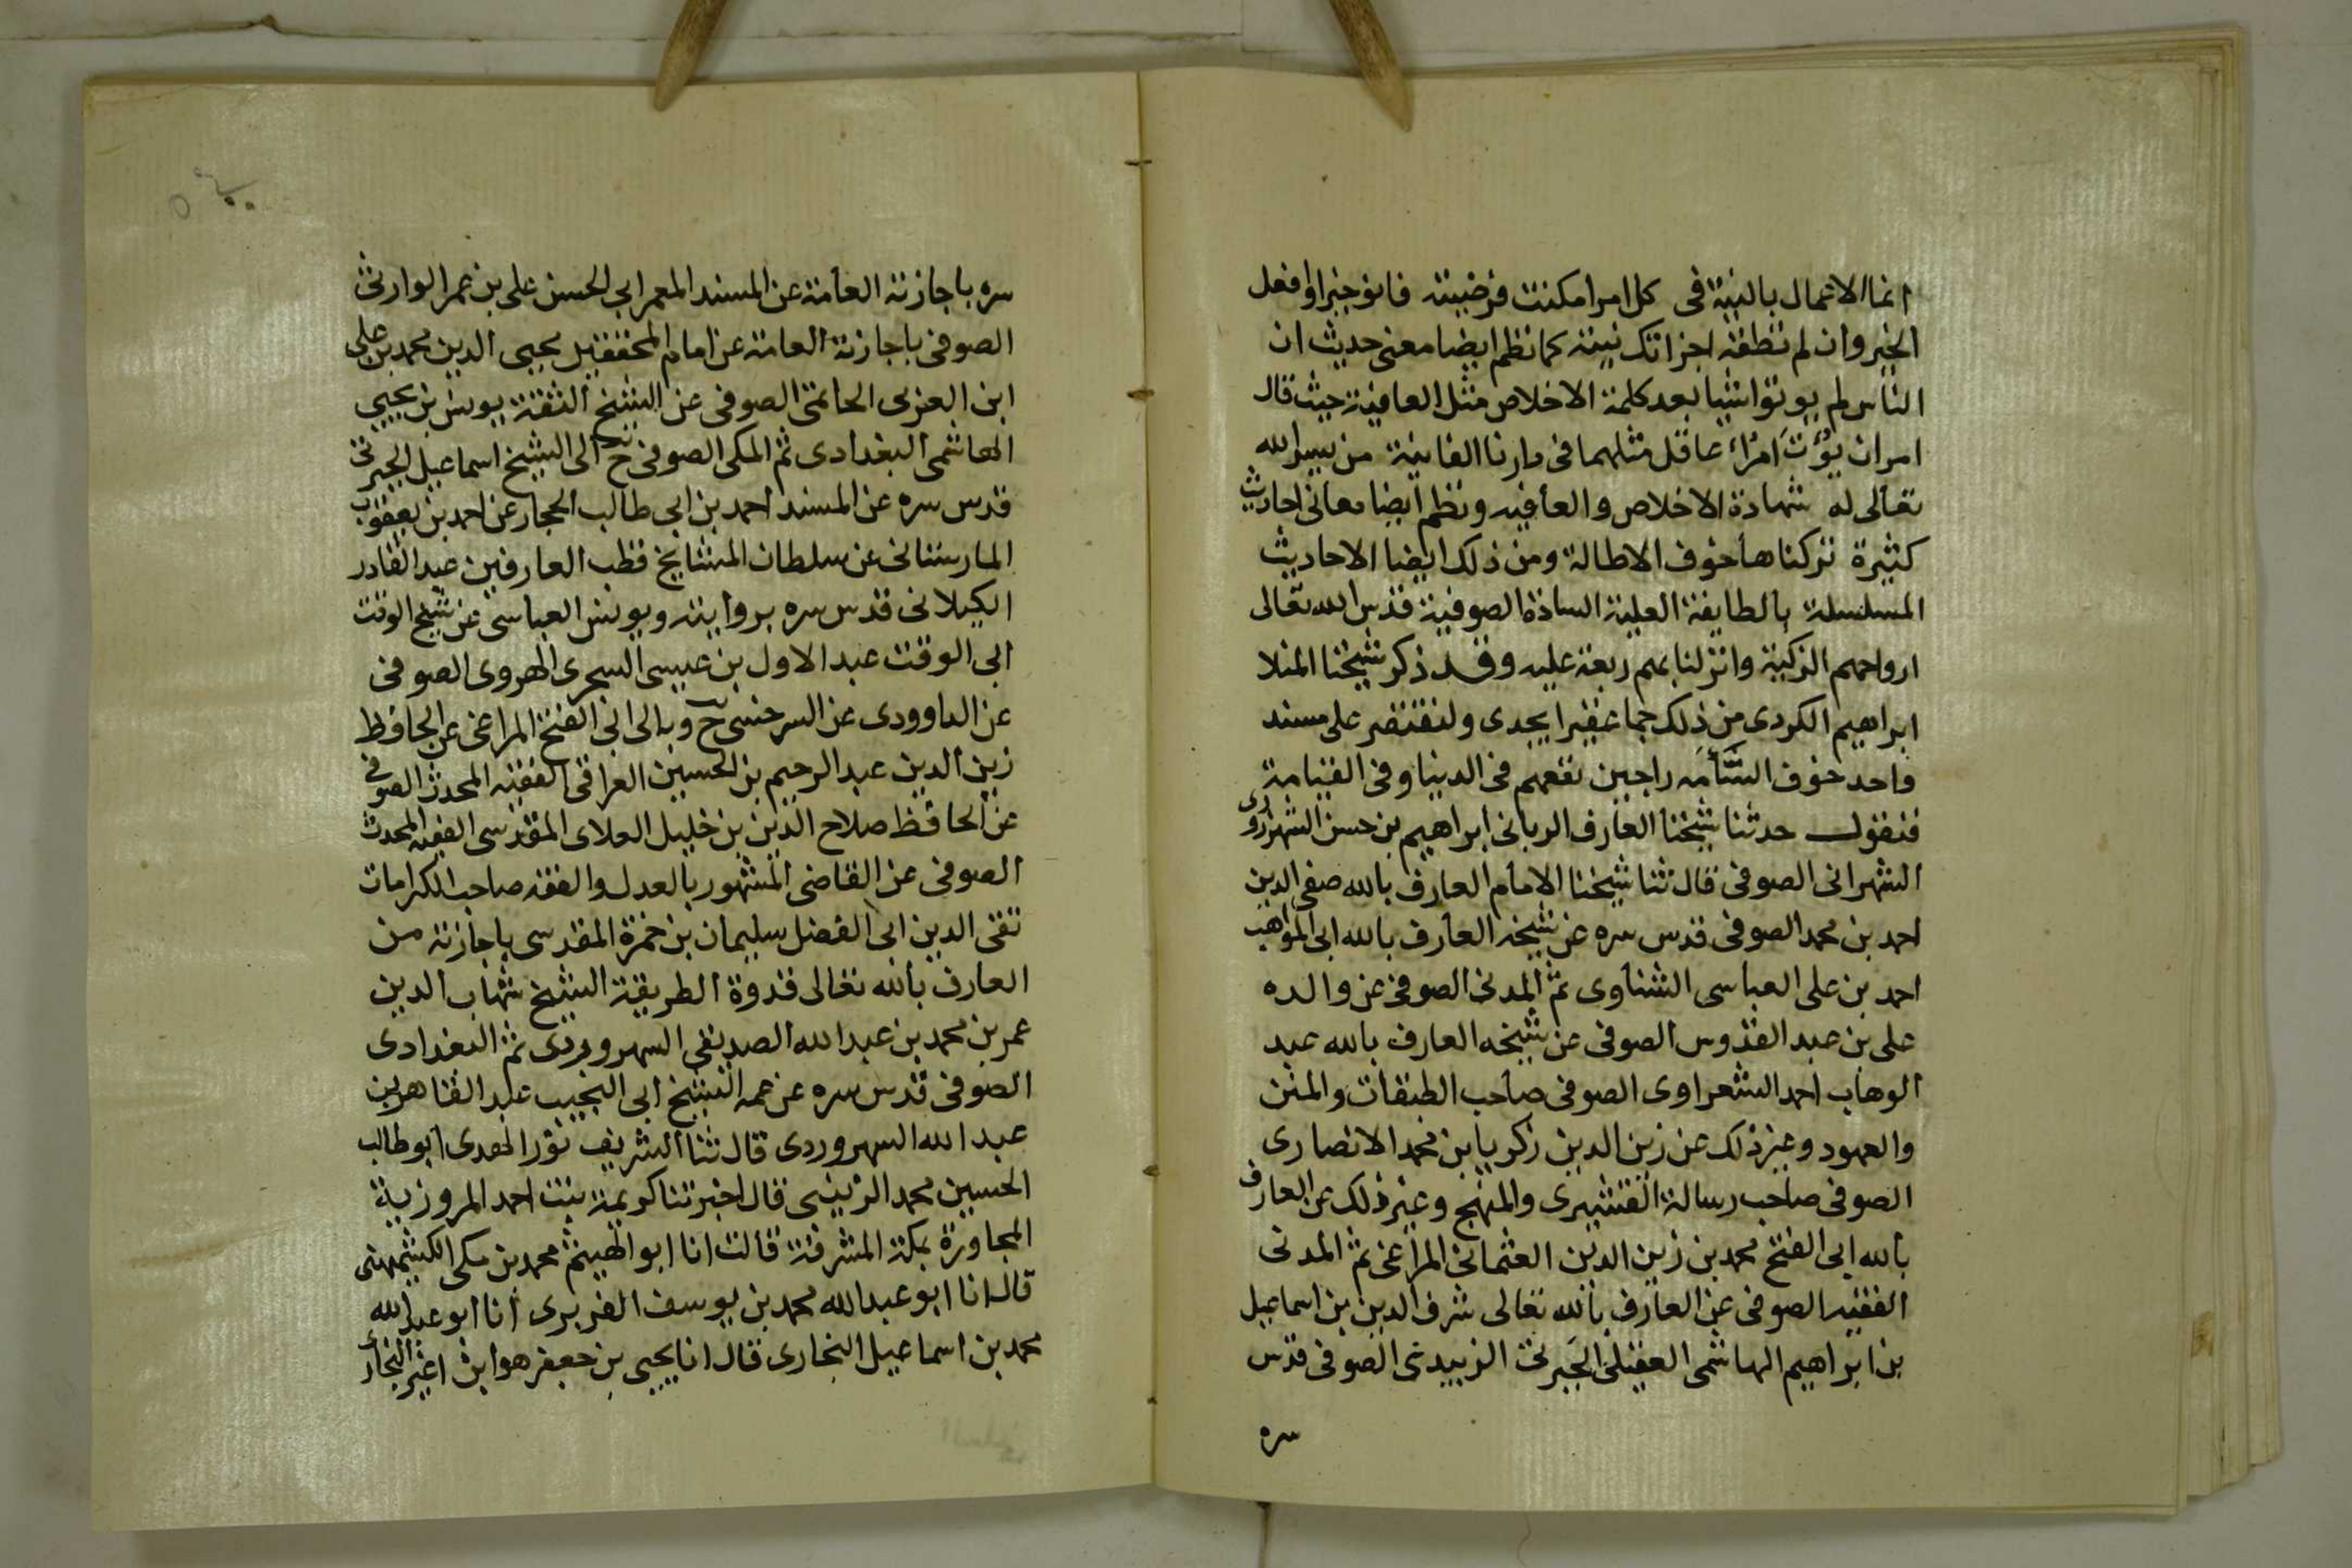 انما الاعمال بالنية فى كل امر امكنت فرضيته فانو خيرا وافعل
الخير وان لم تطقه اجزاتك نيته كما نظم ايضا معنى حديث ان
الناس لم يوتوا شيا بعد كلمة الاخلاص مثل العافية حيث قال
امران يؤت امرأ عاقل مثلهما فى دارنا الفانية من يسر الله
تعالى له شهادة الاخلاص والعافيه ونظم ايضا معانى احاديث
كثيرة تركناها خوف الاطالة ومن ذلك ايضا الاحاديث
المسلسلة بالطايفة العلية السادة الصوفية قدس الله تعالى
ارواحهم الزكية وانزلنا بهم ربعة عليه وقد ذكر شيخنا المنلا
ابراهيم الكردى من ذلك جما غفيرا يجدى ولنقتصر على مسند
واحد خوف السّأمه راجين نفعهم فى الدنيا وفى القيامة
فنقول حدثنا شيخنا العارف الربانى ابراهيم بن حسن الشهرزورى
الشهرانى الصوفى قال ثنا شيخنا الامام العارف بالله صفى الدين
احمد بن محمد الصوفى قدس سره عن شيخه العارف بالله ابى المواهب
احمد بن على العباسى الشناوى ثم المدنى الصوفى عن والده
على بن عبد القدوس الصوفى عن شيخه العارف بالله عبد
الوهاب احمد الشعراوى الصوفى صاحب الطبقات والمنن
والعهود وغير ذلك عن زين الدين زكريا بن محمد الانصارى
الصوفى صاحب رسالة القشيرى والمنهج وغير ذلك عن العارف
بالله ابى الفتح محمد بن زين الدين العثمانى المراغى ثم المدنى
الفقيه الصوفى عن العارف بالله تعالى شرف الدين بن اسماعيل
بن ابراهيم الهاشمى العقيلى الجبرتى الزبيدى الصوفى قدس
سره
سره باجازته العامة عن المسند المعمر ابى الحسن على بن عمر الوارثى
الصوفى باجازته العامة عن امام المحققين محيى الدين محمد بن على
ابن العربى الحاتمى الصوفى عن الشيخ الثقة يونس بن يحيى
الهاشمى البغدادى ثم المكى الصوفى ح الى الشيخ اسماعيل الجبرتى
قدس سره عن المسند احمد بن ابى طالب الحجار عن احمد بن يعقوب
المارستانى عن سلطان المشايخ قطب العارفين عبد القادر
الكيلانى قدس سره بروايته ويونس العباسى عن شيخ الوقت
ابى الوقت عبد الاول بن عيسى السجرى الهروى الصوفى
عن الداوودى عن السرخسى ح وبه الى ابى الفتح المراغى عن الحافظ
زين الدين عبد الرحيم بن الحسين العراقى الفقيه المحدث الصوفى
عن الحافظ صلاح الدين بن خليل العلاى المقدسى الفقيه المحدث
الصوفى عن القاضى المشهور بالعدل والفقه صاحب الكرامات
تقى الدين ابى الفضل سليمان بن حمزة المقدسى باجازته من
العارف بالله تعالى قدوة الطريقة الشيخ شهاب الدين
عمر بن محمد بن عبد الله الصديقى السهروردى ثم البغدادى
الصوفى قدس سره عن عمه الشيخ ابى النجيب عبد القاهر بن
عبد الله السهروردى قال ثنا الشريف نور الهدى ابو طالب
الحسين محمد الزينبى قال اخبرتنا كريمة بنت احمد المروزية
المجاورة بمكة المشرفة قالت انا ابو الهيثم محمد بن مكى الكشميهنى
قال انا ابو عبد الله محمد بن يوسف الفربرى انا ابو عبد الله
محمد بن اسماعيل البخارى قال انا يحيى بن جعفر هو ابن اعين البخارى